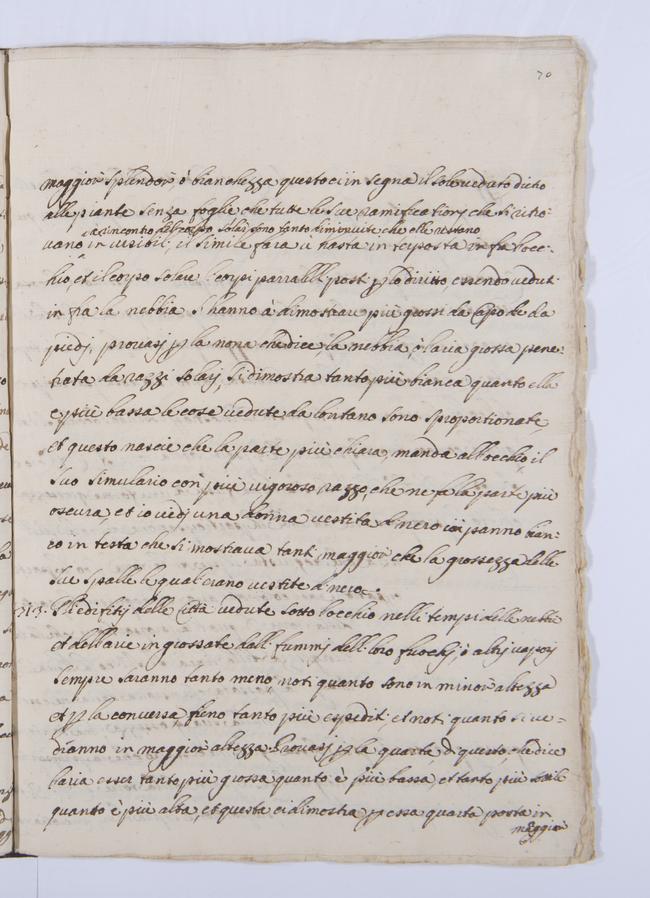 70
maggior splendor ò bianchezza questo ci in segna il sole veduto drieto
alle piante senza foglie che tutte le sue ramificationj che si ritro-
a rincontro del corpo solar sono tanto diminuite che elle restano
vano in visibili, il simile fara u hasta interposta in fra l'occ-
hio et il corpo solare l'corpi parralleli posti p lo diritto, essendo veduti
in fra la nebbia s'hanno à dimostrar più grossi da capo che da
piedj, provasj p la nona che dice, la nebbia ò l'aria grossa pene-
trata da razzi solarj, si dimostra tanto più bianca quanto ella
e più bassa le cose vedute da lontano sono sproportionate
et questo nascie che la parte più chiara, manda all'occhio, il
suo simulario con più vigoroso razzo, che ne fa la parte più
oscura, et io vedj una donna vestita di nero con panno bian-
co in testa che si mostrava tanti, maggior che la grossezza delle
sue spalle le quali erano vestite di nero.
Gli edifitij delle Città vedute sotto l'occhio nelli tempi delle nebbie
et dell'arie in grossate dalli fummj delli loro fuochj, ò altrj vaporj
sempre saranno tanto meno, noti quanto sono in minor altezza
et p la conversa, fieno tanto più espediti, et noti quanto si ve-
dranno in maggior altezza. Provasj p la quarta, di questo, che dice
l'aria esser tanto più grossa quanto è più bassa, et tanto più sottile
quanto è più alta, et questa ci dimostra p essa quarta posta in
maggior